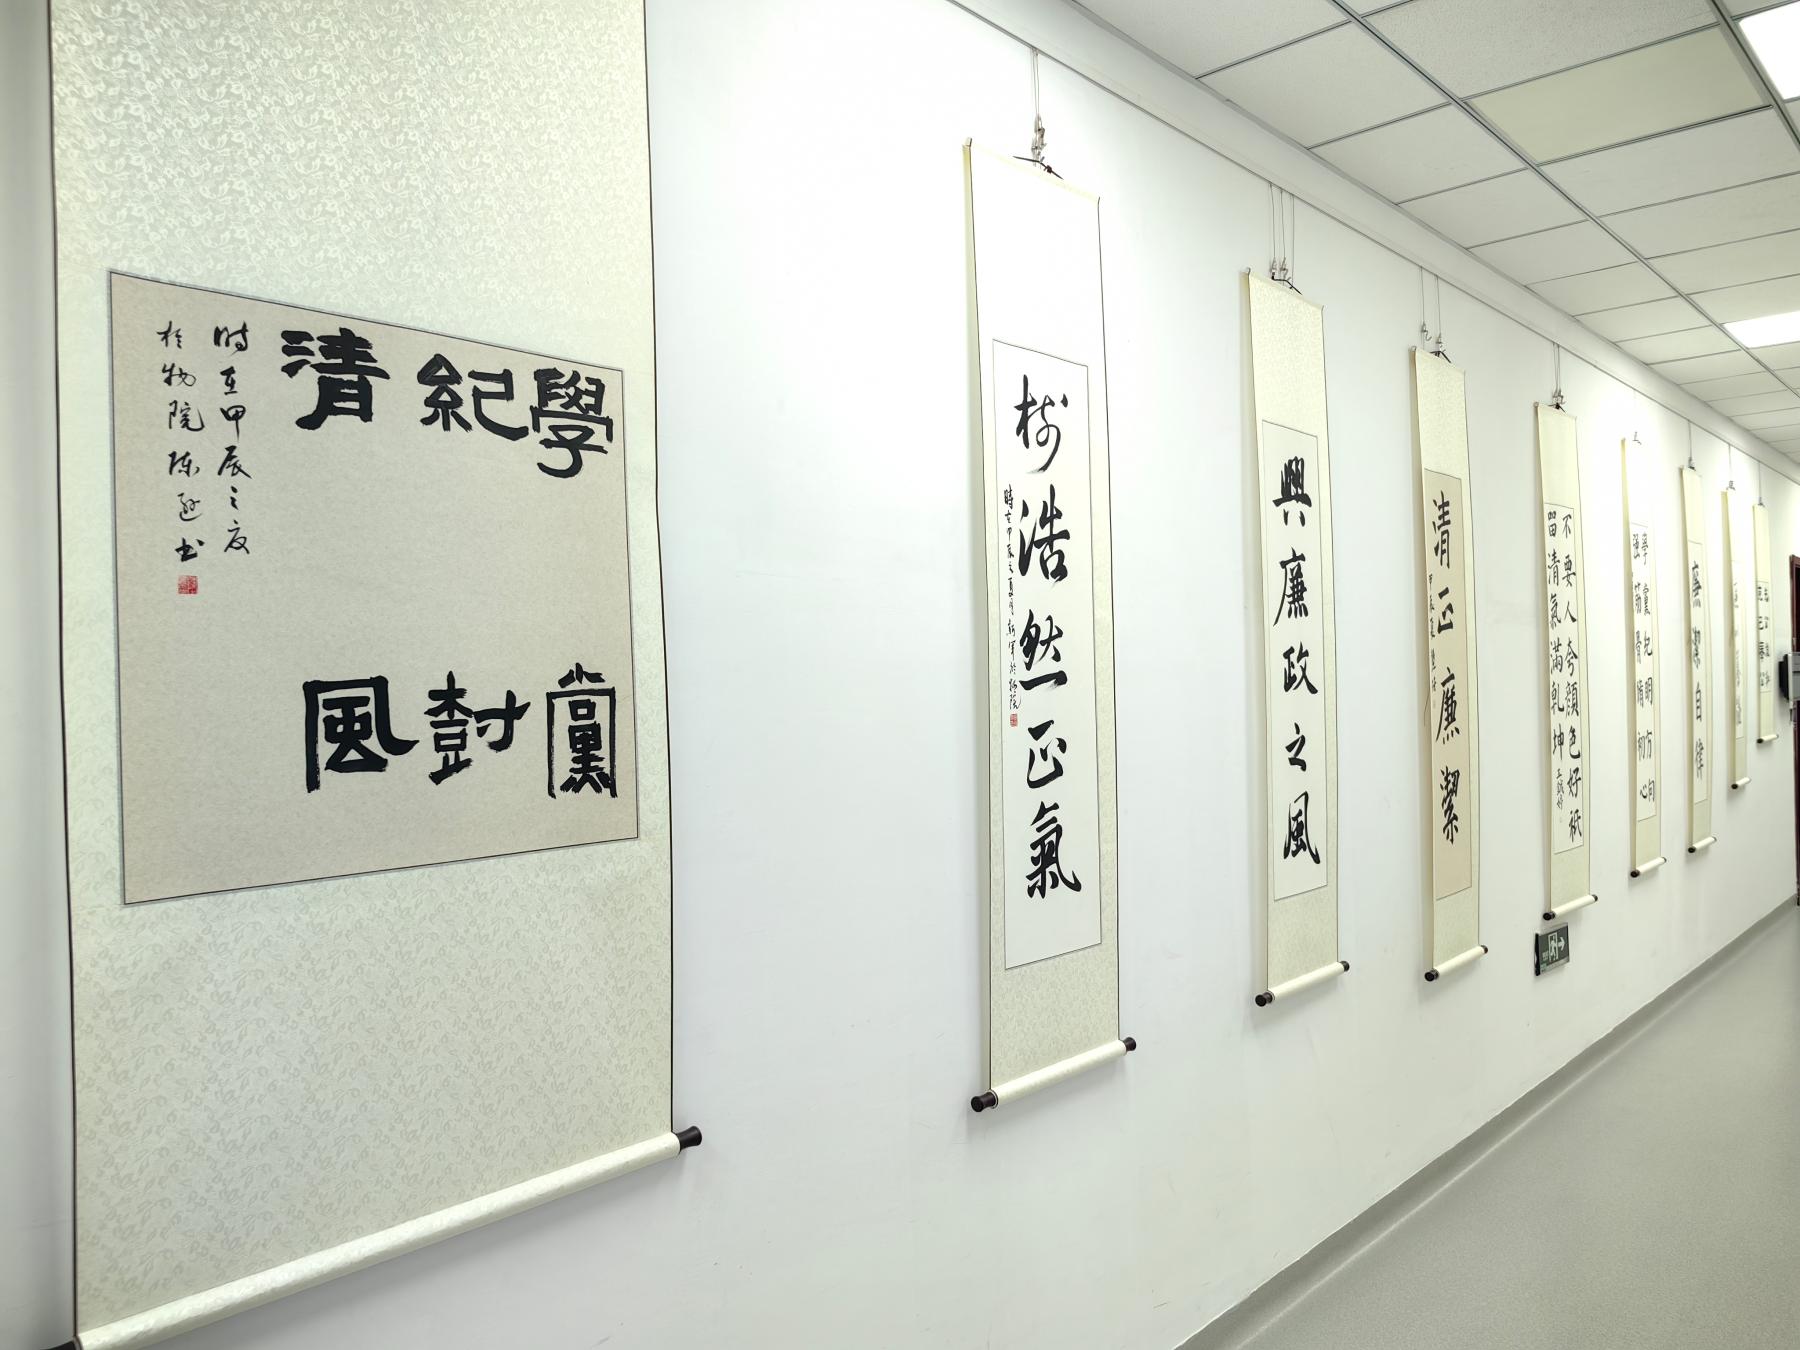 學黨
紀樹
清風
時在甲辰之夏
於物院陈书
树浩然正氣
時在甲辰之夏月新軍於物院
興廉政之風
清正廉潔
甲辰夏
不要人夸顏色好祇
留清氣滿乾坤
學黨紀明方向
强筋骨初心
廉潔自律